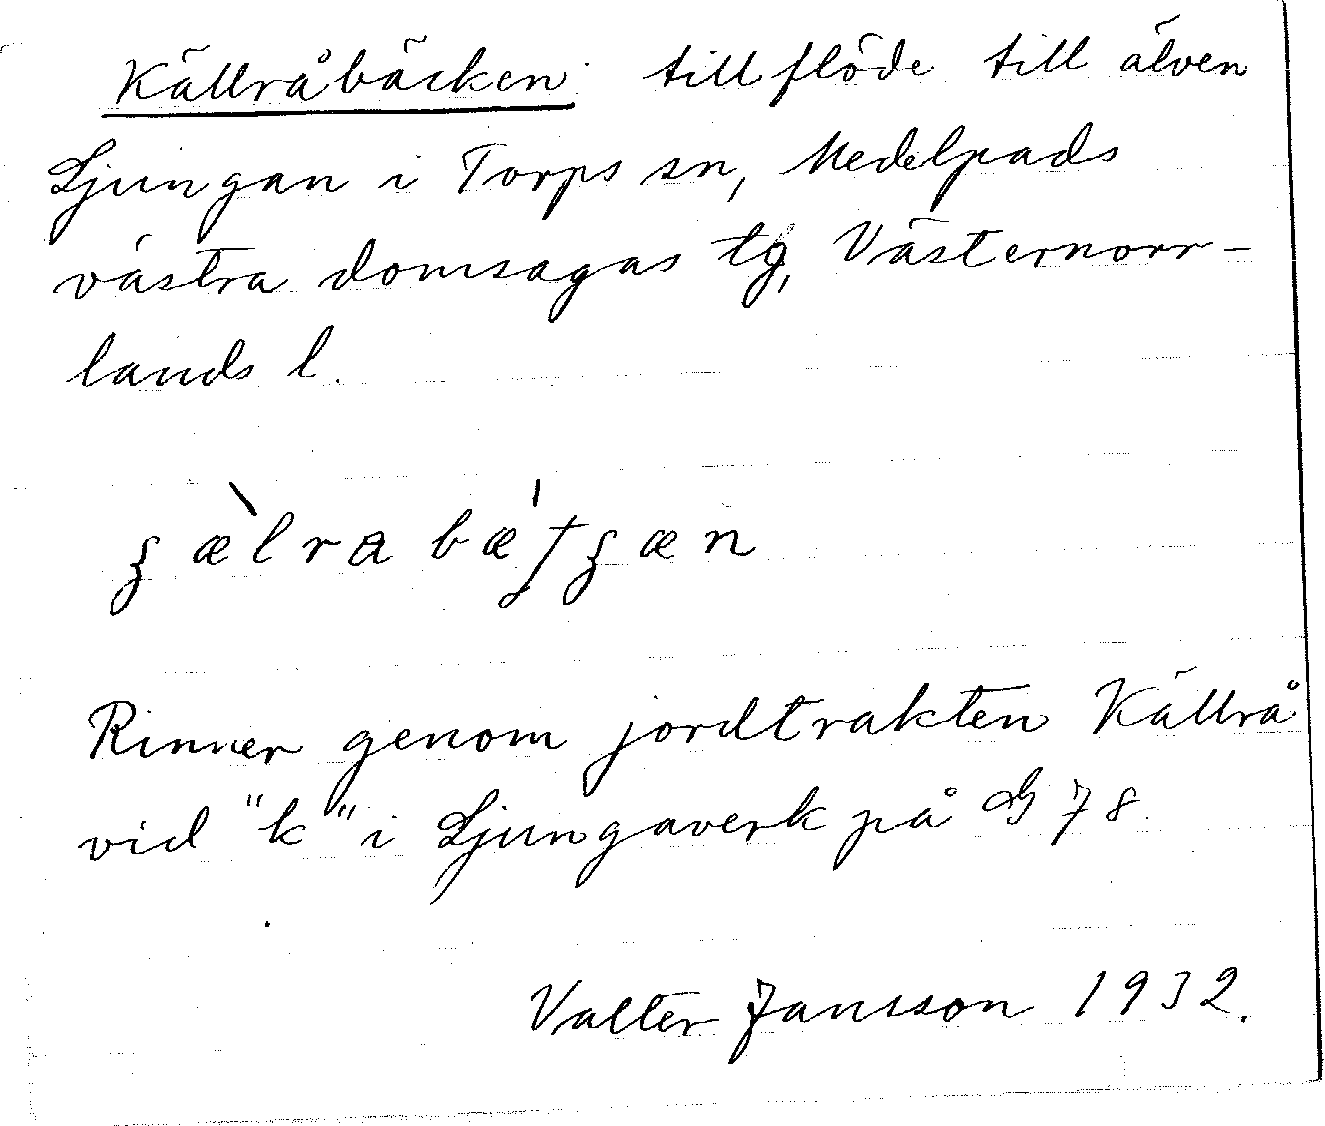 Källråbäcken tillflöde till älven
Ljungan i Torps sn, Medelpads
västra domsagas tg, Västernorr-
lands l.
Rinner genom jordtrakten Källrå
vid "k" i Ljungaverk på G 78
Valter Jansson 1932.